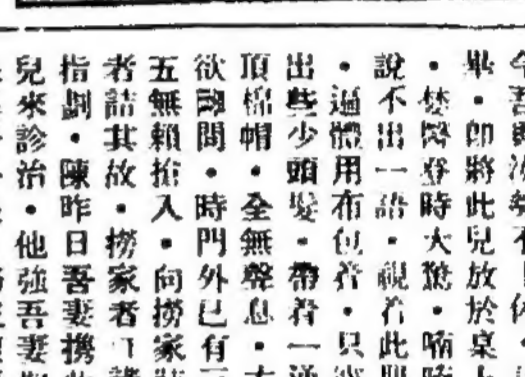 畢・即將此兒放於桌
・婪醫登時大驚・喃
說不出一語・視着此
・遍體用布包着・只
出些少頭髮・帶着一
頂棉帽・・全無聲息・
欲詷問・時門外已有
五無賴搶入・向撈家
者詰其故・撈家者
指劃・陳昨日吾妻攜
兒來診治・他強吾妻